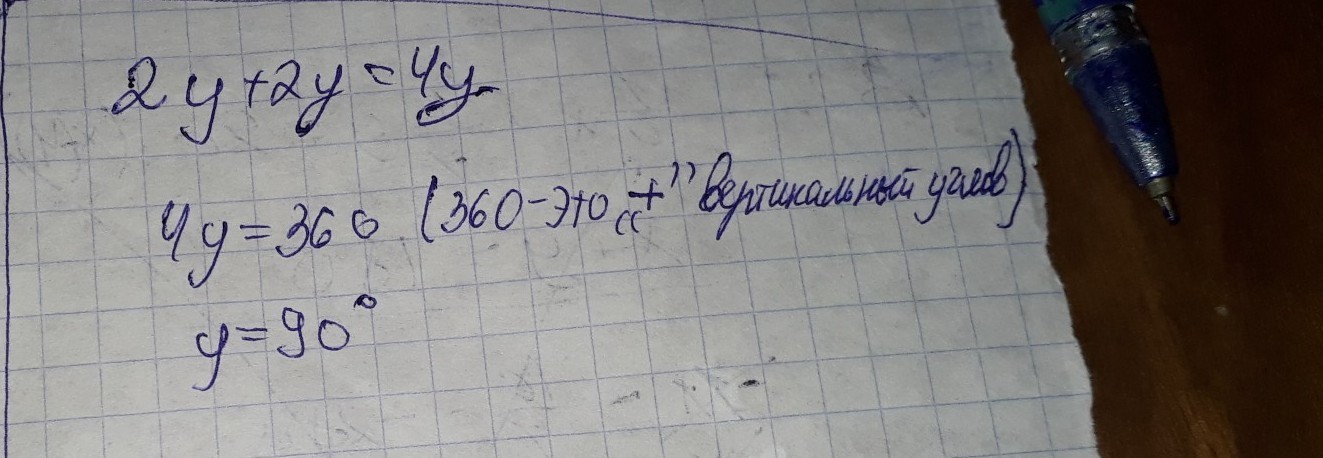 2y+2y=4y
4y=360 (360-это „+” вертикальный углов)
y=90°